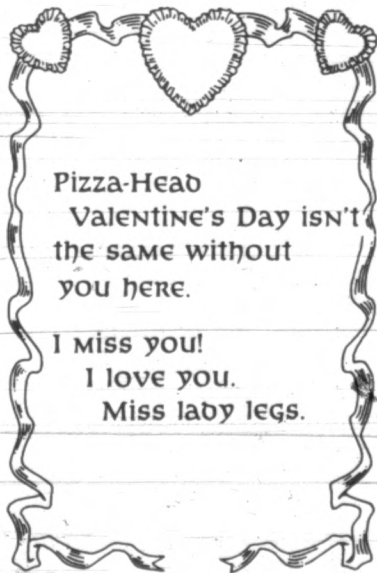 Pizza-Head
Valentine's Day isn't
the same without
you here.
I miss you!
I love you.
Miss lady legs.